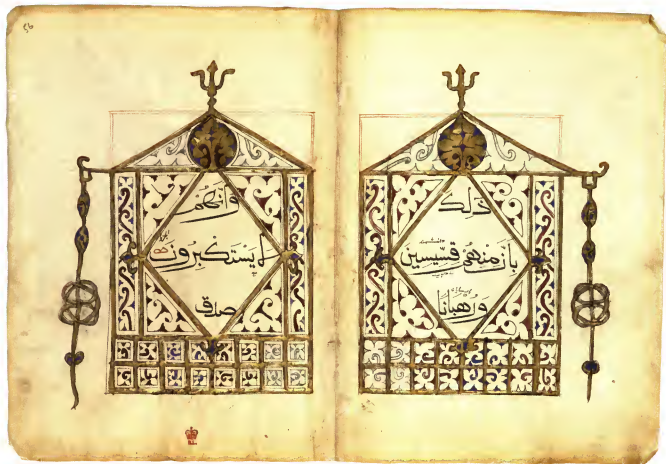 ذلك
بان منهم قسيسين
ورهبانا
وانهم
لا يستكبرون
صدق